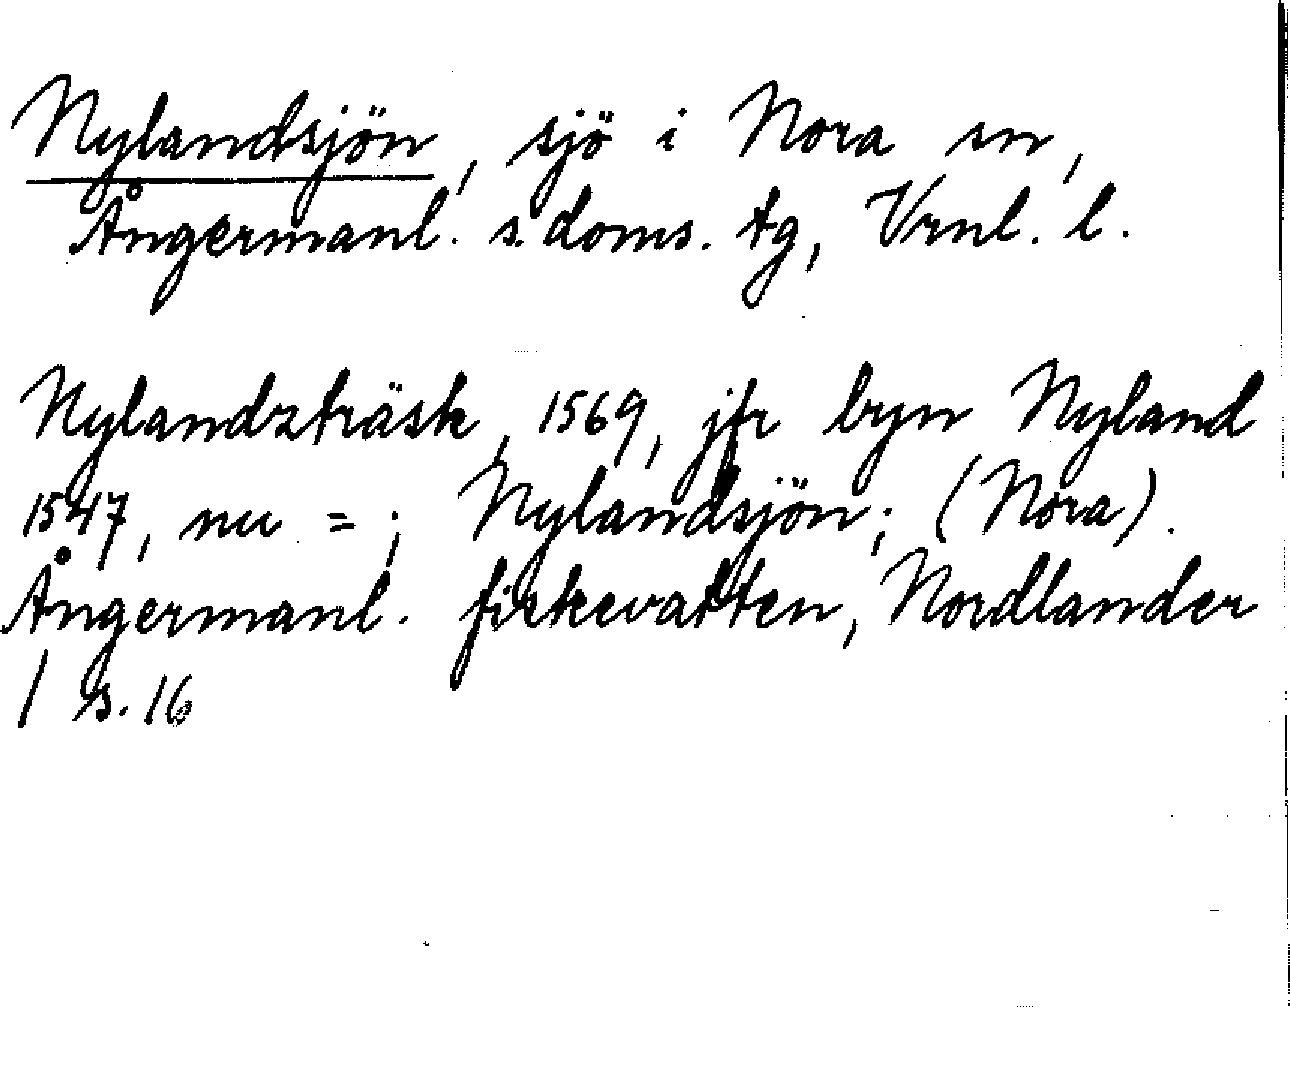 Nylandsjön, sjö i Nora sn,
Ångermanl. s. doms. tg, Vrnl. l.
Nylandzträsk, 1569, jfr byn Nyland
1547, nu = ; Nylandsjön; (Nora).
Ångermanl. fiskevatten, Nordlander
/ s. 16